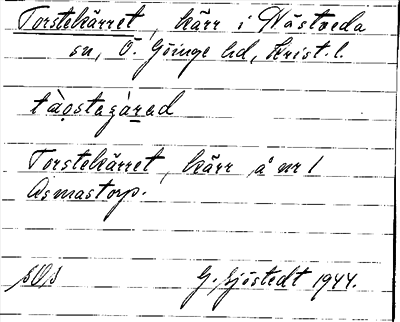 Torstekärret, kärr i Nästveda
sn, Ö. Göinge hd, Krist. l.
tàọstaşạ̀rad
Torstekärret, kärr å nr 1
Asmastorp.
G. Sjöstedt 1944.